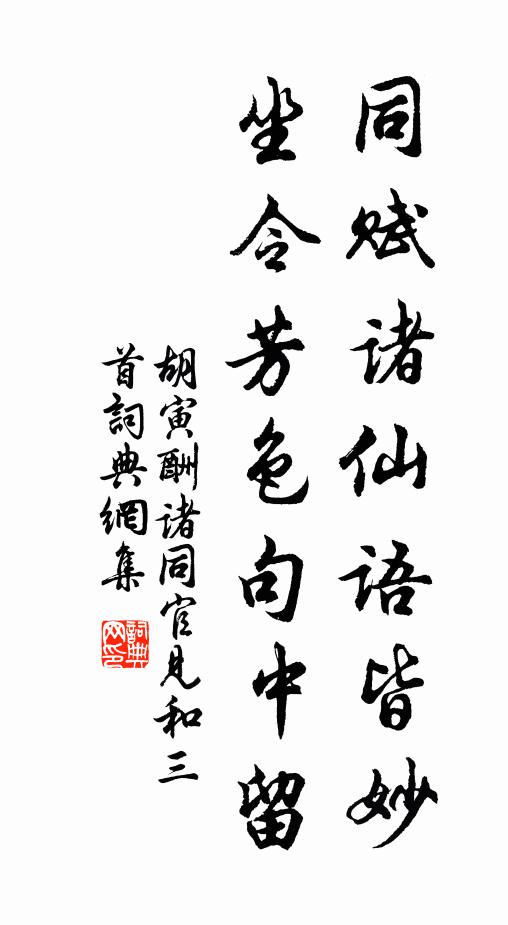 同赋诸仙语皆妙
坐令芳色句中留
胡寅酬诸同官见和三
首詞典網集
詞典
网印